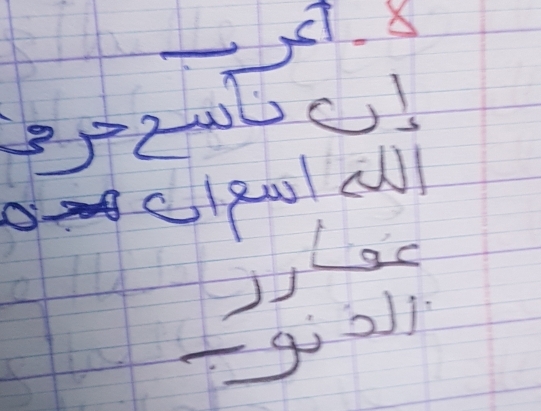 8. أعرب
إن ناسخ حرفي
الله اسم إن
غفار
الذنوب